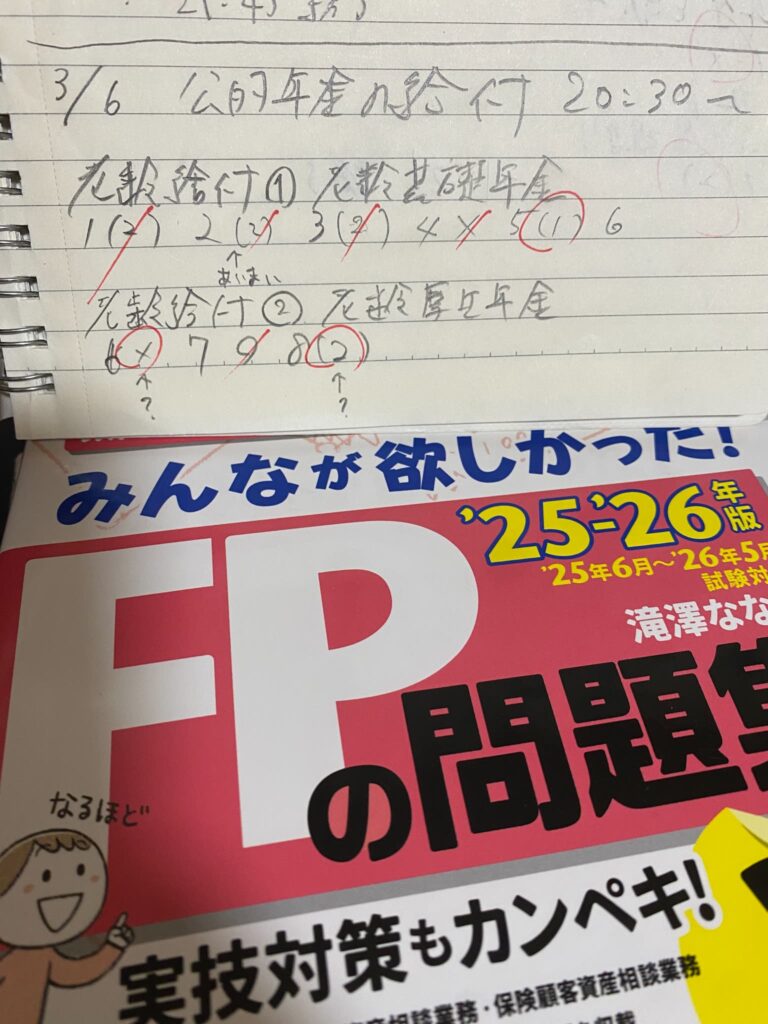 3/6 公的年金の給付 20:30〜
老齢給付① 老齢基礎年金
1(2) 2(3) 3(2) 4 × 5(1) 6
↑
あいまい
老齢給付② 老齢厚生年金
6 × 7 9 8(2)
↑ ↑
? ?
みんなが欲しかった!
'25-'26年版
'25年6月〜'26年5月
試験対
滝澤なな
FPの問題集
なるほど
実技対策もカンペキ!
産相談業務・保険顧客資産相談業務